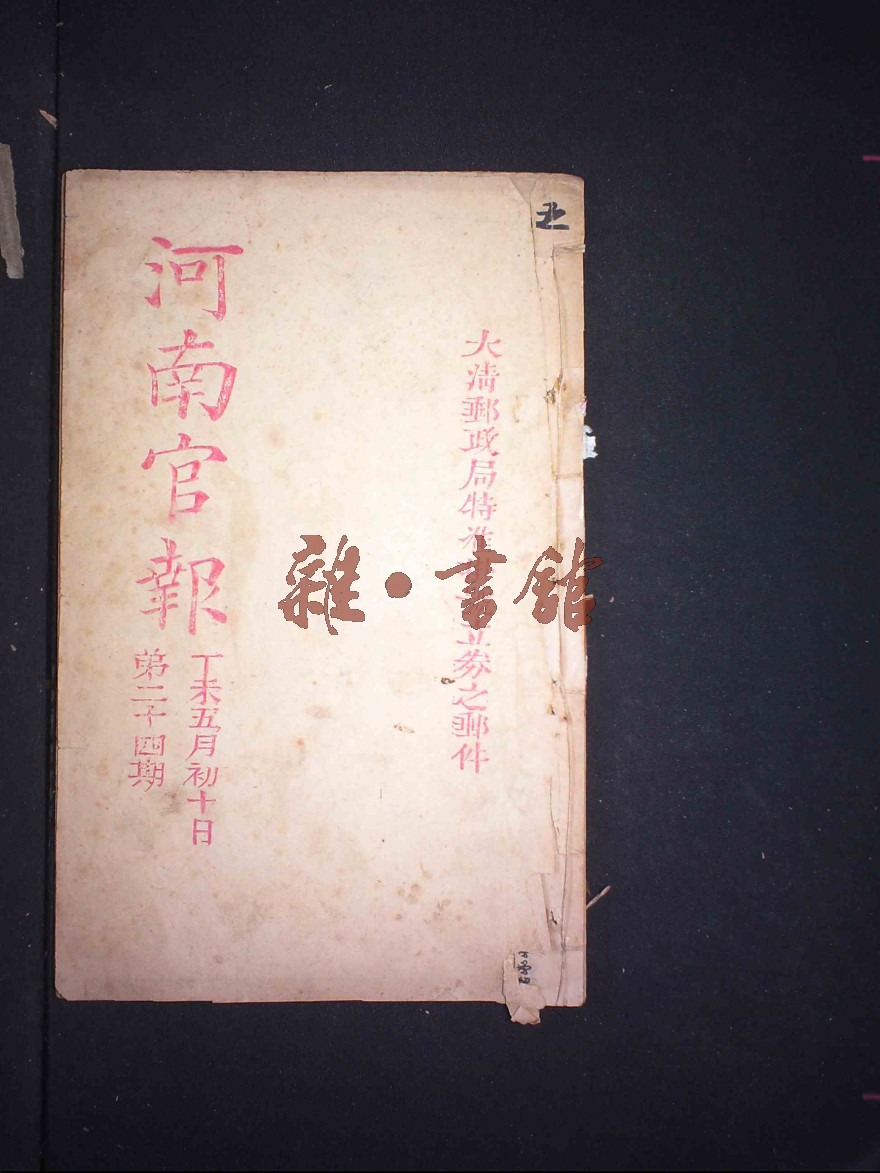 北
大清郵政局特准
立券之郵件
河南官報
丁未五月初十日
第二十四期
雜·書舘